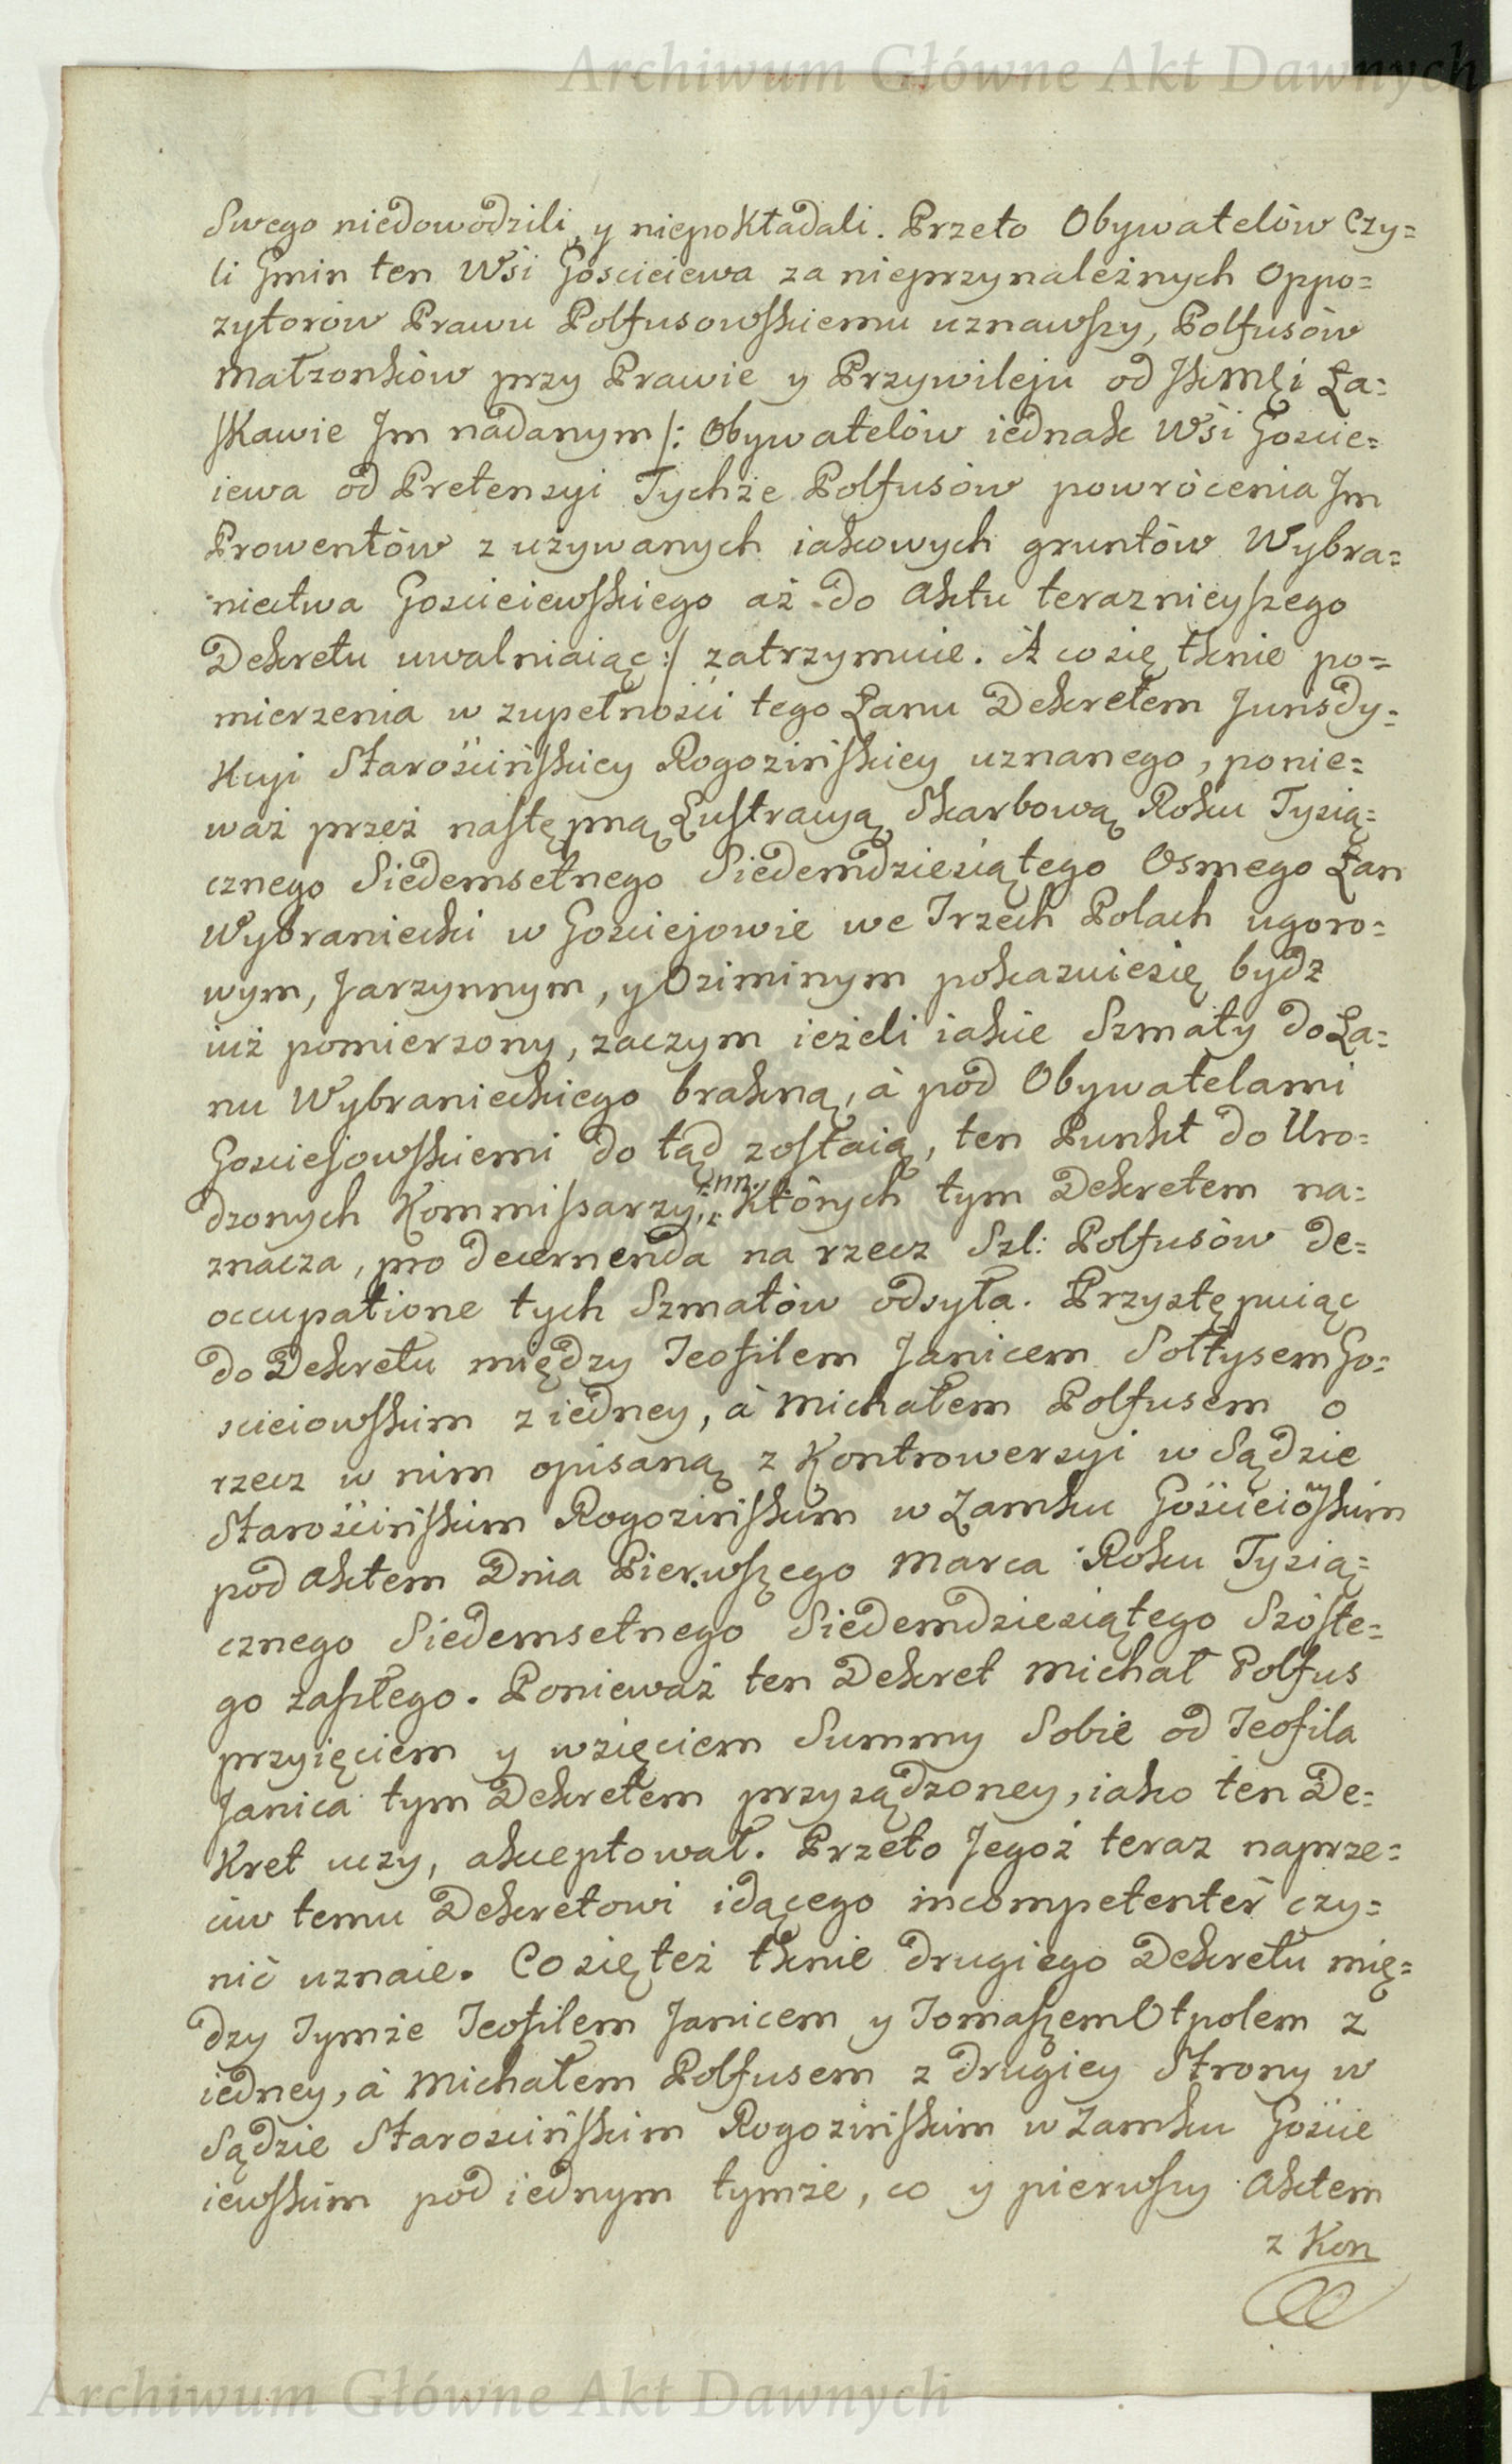 Archiwum Główne Akt Dawnych
Swego niedowodzili, y niepokładali. Przeto Obywatelów Czy=
li Gmin ten Wsi Gościeiewa za nieprzynależnych Oppo=
zytorów Prawu Polfusowskiemu uznawszy, Polfusów
Małzonków przy Prawie y Przywileju od JKMCi Ła=
skawie Jm nadanym /: Obywatelów iednak Wsi Goscie=
iewa od Pretensyi Tychże Polfusów powrócenia Jm
Prowentów z używanych iakowych gruntów Wybra=
niectwa Gościeiewskiego aż do Aktu teraznieyszego
Dekretu uwalniaiąc :/ zatrzymuie. A co się tknie po=
mierzenia w zupełności tego Łanu Dekretem Jurisdy=
kcyi Starościńskiey Rogozińskiey uznanego, ponie=
waż przez następną Lustracyą Skarbową Roku Tysią=
cznego Siedemsetnego Siedemdziesiątego Osmego Łan
Wybraniecki w Gościejowie we Trzech Polach ugoro=
wym, Jarzynnym, y Oziminym pokazuiesię bydz
iuż pomierzony, zaczym ieżeli iakie Szmaty do Ła=
nu Wybranieckiego brakną, à pod Obywatelami
Gościejowskiemi do tąd zostaią, ten Punkt do Uro=
dzonych Kommissarzy /:nn:/ Których tym Dekretem na=
znacza, pro decernenda na rzecz Szl: Polfusów de=
occupatione tych Szmatów odsyła. Przystępuiąc
do Dekretu między Teofilem Janicem Sołtysem Go=
ścieiowskim z iedney, à Michałem Polfusem o
rzecz w nim opisaną z Kontrowersyi w Sądzie
Starościńskim Rogozińskim w Zamku Gościeiowskim
pod Aktem Dnia Pierwszego Marca Roku Tysią=
cznego Siedemsetnego Siedemdziesiątego Szóste=
go zaszłego. Ponieważ ten Dekret Michał Polfus
przyięciem y wzięciem Summy Sobie od Teofila
Janica tym Dekretem przysądzoney, iako ten De=
kret uczy, akceptował. Przeto Jegoż teraz naprze=
ciw temu Dekretowi idącego incompetenter czy=
nić uznaie. Co się też tknie drugiego Dekretu mię=
dzy Tymże Teofilem Janicem y Tomaszem Otpolem z
iedney, à Michałem Polfusem z drugiey Strony w
Sądzie Starościńskim Rogozińskim w Zamku Goście
iewskim pod iednym tymże, co y pierwszy Aktem
z Kon
Archiwum Główne Akt Dawnych